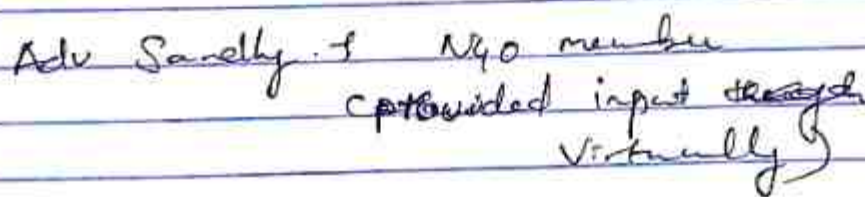 Adv Sandhy. I NGO member
(provided input through
Virtually)